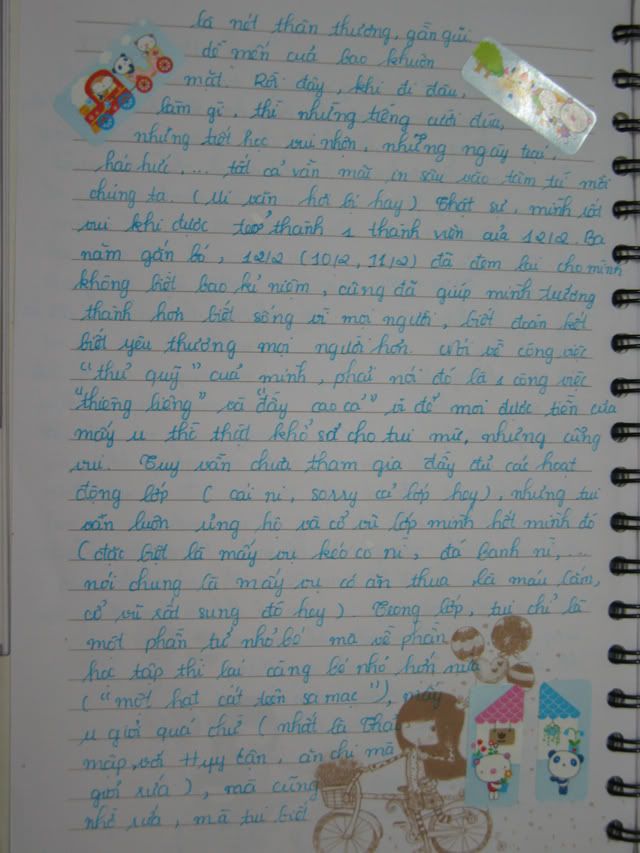 là nét thân thương, gần gũi
dễ mến của bao khuôn
mặt. Rồi đây, khi đi đâu,
làm gì, thì những tiếng cười đùa,
những tiết học vui nhộn, những ngày trại
háo hức, ... tất cả vẫn mãi in sâu vào tâm trí mỗi
chúng ta. (Ui văn hơi bị hay) Thật sự, mình rất
vui khi được trở thành 1 thành viên của 12/2. Ba
năm gắn bó, 12/2 (10/2, 11/2) đã đem lại cho mình
không biết bao kỉ niệm, cũng đã giúp mình trưởng
thành hơn biết sống vì mọi người, biết đoàn kết
biết yêu thương mọi người hơn. Nói về công việc
"thủ quỹ" của mình, phải nói đó là 1 công việc
"thiêng liêng" và "đầy cao cả" vì để moi được tiền của
mấy u thì thật khổ sở cho tui mừ, nhưng cũng
vui. Tuy vẫn chưa tham gia đầy đủ các hoạt
động lớp (cái ni, sorry cả lớp hey), nhưng tui
vẫn luôn ủng hộ và cổ vũ lớp mình hết mình đó
(đặc biệt là mấy vụ kéo co nì, đá banh nì, ...
nói chung là mấy vụ có ăn thua là máu lắm,
cổ vũ rất sung đó hey). Trong lớp, tui chỉ là
một phần tử nhỏ bé mà về phần
học tập thì lại càng bé nhỏ hơn nữa
("một hạt cát trên sa mạc"), mấy
u giỏi quá chừ (nhất là Thái
mập, với Huy tận, ăn chi mà
giỏi rứa), mà cũng
nhờ rứa, mà tui biết